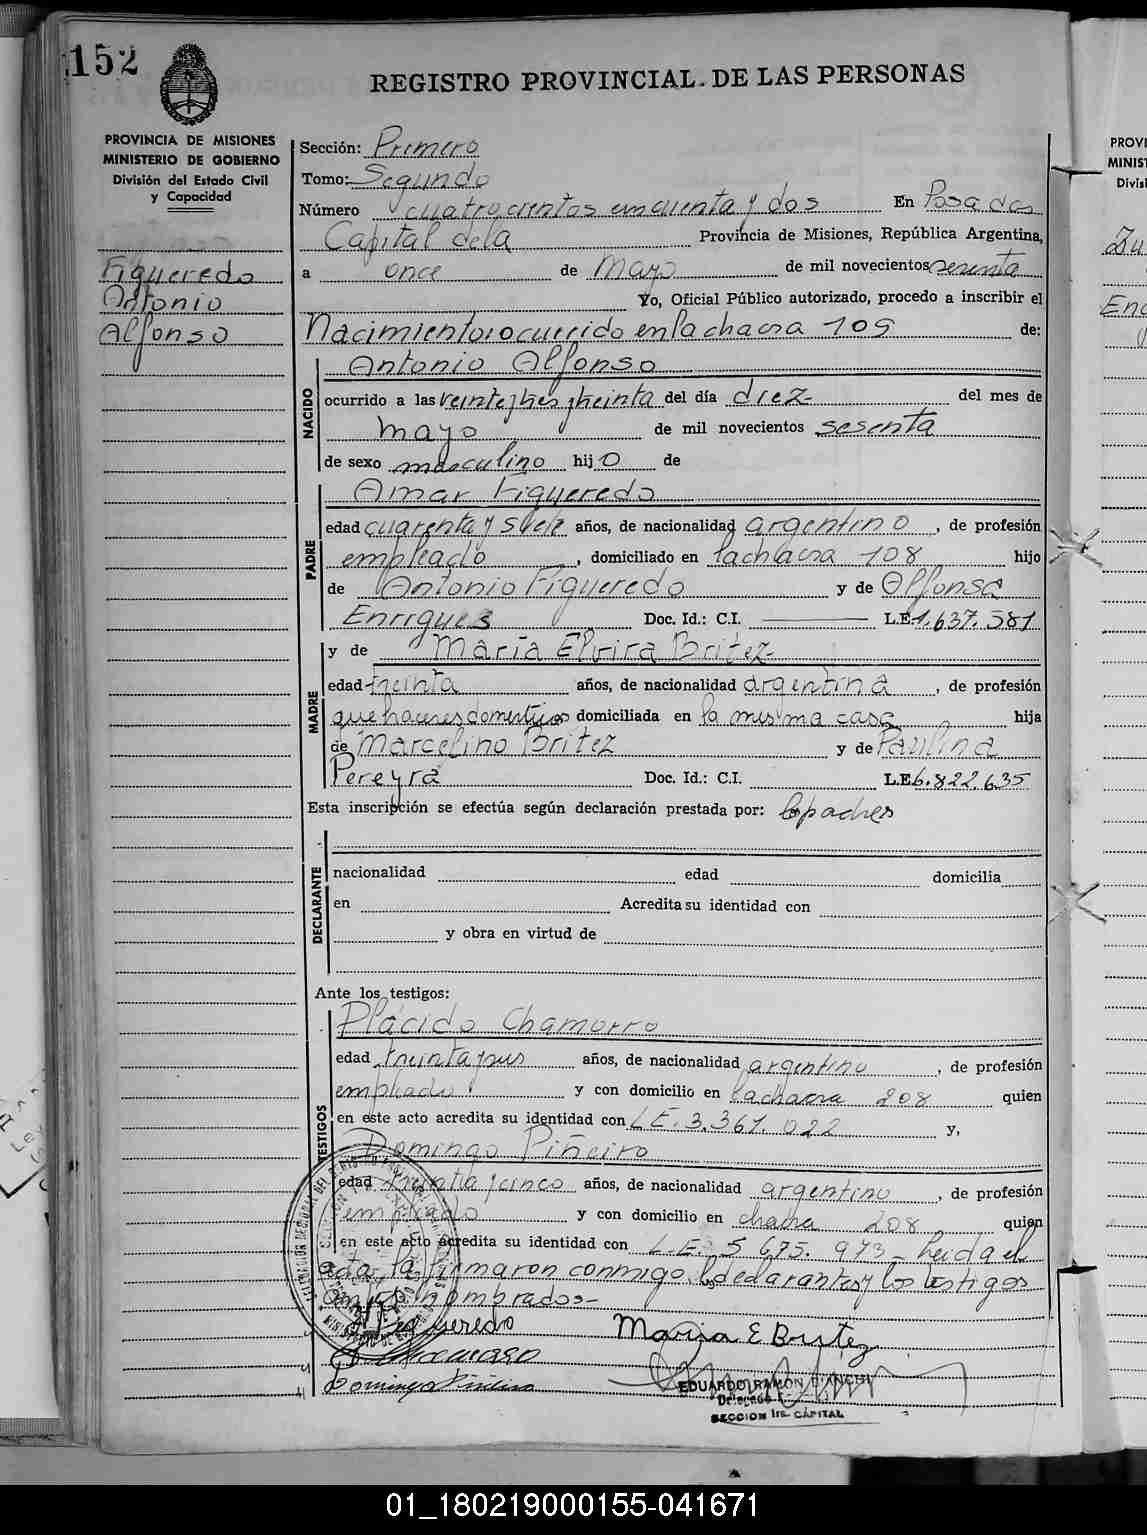 152
REGISTRO PROVINCIAL DE LAS PERSONAS
PROVINCIA DE MISIONES
MINISTERIO DE GOBIERNO
División del Estado Civil
y Capacidad
Figueredo
Antonio
Alfonso
Sección: Primero
Tomo: Segundo
Número cuatrocientos cincuenta y dos En Posadas
Capital dela Provincia de Misiones, República Argentina,
a once de Mayo de mil novecientos sesenta
Yo, Oficial Público autorizado, procedo a inscribir el
Nacimiento: ocurrido en la chacra 109 de:
NACIDO
Antonio Alfonso
ocurrido a las veinte y tres y treinta del día diez del mes de
mayo de mil novecientos sesenta
de sexo masculino hijo de
PADRE
Omar Figueredo
edad cuarenta y siete años, de nacionalidad argentino, de profesión
empleado, domiciliado en la chacra 108 hijo
de Antonio Figueredo y de Alfonsa
Enriques Doc. Id.: C.I. L.E. 1.637.581
MADRE
y de María Elvira Britez
edad treinta años, de nacionalidad argentina, de profesión
quehaceres domesticos domiciliada en la misma casa hija
de Marcelino Britez y de Paulina
Pereyra Doc. Id.: C.I. L.E. 6.822.635
Esta inscripción se efectúa según declaración prestada por: los padres
DECLARANTE
nacionalidad edad domicilia
en Acredita su identidad con
y obra en virtud de
Ante los testigos:
TESTIGOS
Plácido Chamorro
edad treinta y seis años, de nacionalidad argentino, de profesión
empleado y con domicilio en la chacra 208 quien
en este acto acredita su identidad con L.E. 3.361.022 y,
Domingo Piñeiro
edad treinta y cinco años, de nacionalidad argentino, de profesión
empleado y con domicilio en chacra 208 quien
en este acto acredita su identidad con L.E. 5 675. 973 - Leida el
acta, la firmaron conmigo, los declarantes y los testigos
antes nombrados-
Figueredo Maria E Britez
Domingo Piñeiro
EDUARDO RAMON BIANCHI
Delegado
SECCION 1ra. CAPITAL
PROVI
MINIST
Divis
01_180219000155-041671